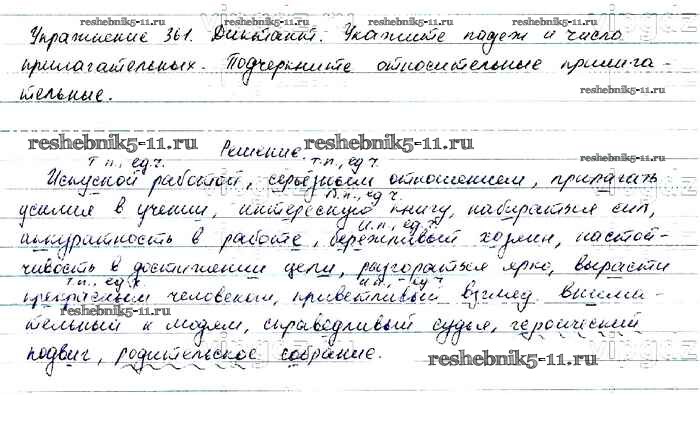 reshebnik5-11.ru reshebnik5-11.ru
Упражнение 361. Диктант. Укажите падеж и число
прилагательных. Подчеркните относительные прилага-
тельные.
reshebnik5-11.ru reshebnik5-11.ru
reshebnik5-11.ru Решение. reshebnik5-11.ru
т.п., ед.ч. т.п., ед.ч.
Искусной работой, серьёзным отношением, прилагать
В.п., ед.ч.
усилия в учении, интересную книгу, набираться сил,
И.п., ед.ч.
аккуратность в работе, бережливый хозяин, настой-
чивость в достижении цели, разгораться ярко, вырасти
т.п., ед.ч. И.п., ед.ч.
прекрасным человеком, приветливый взгляд внима-
reshebnik5-11.ru reshebnik5-11.ru
тельный к людям, справедливый судья, героический
подвиг, родительское собрание.
reshebnik5-11.ru